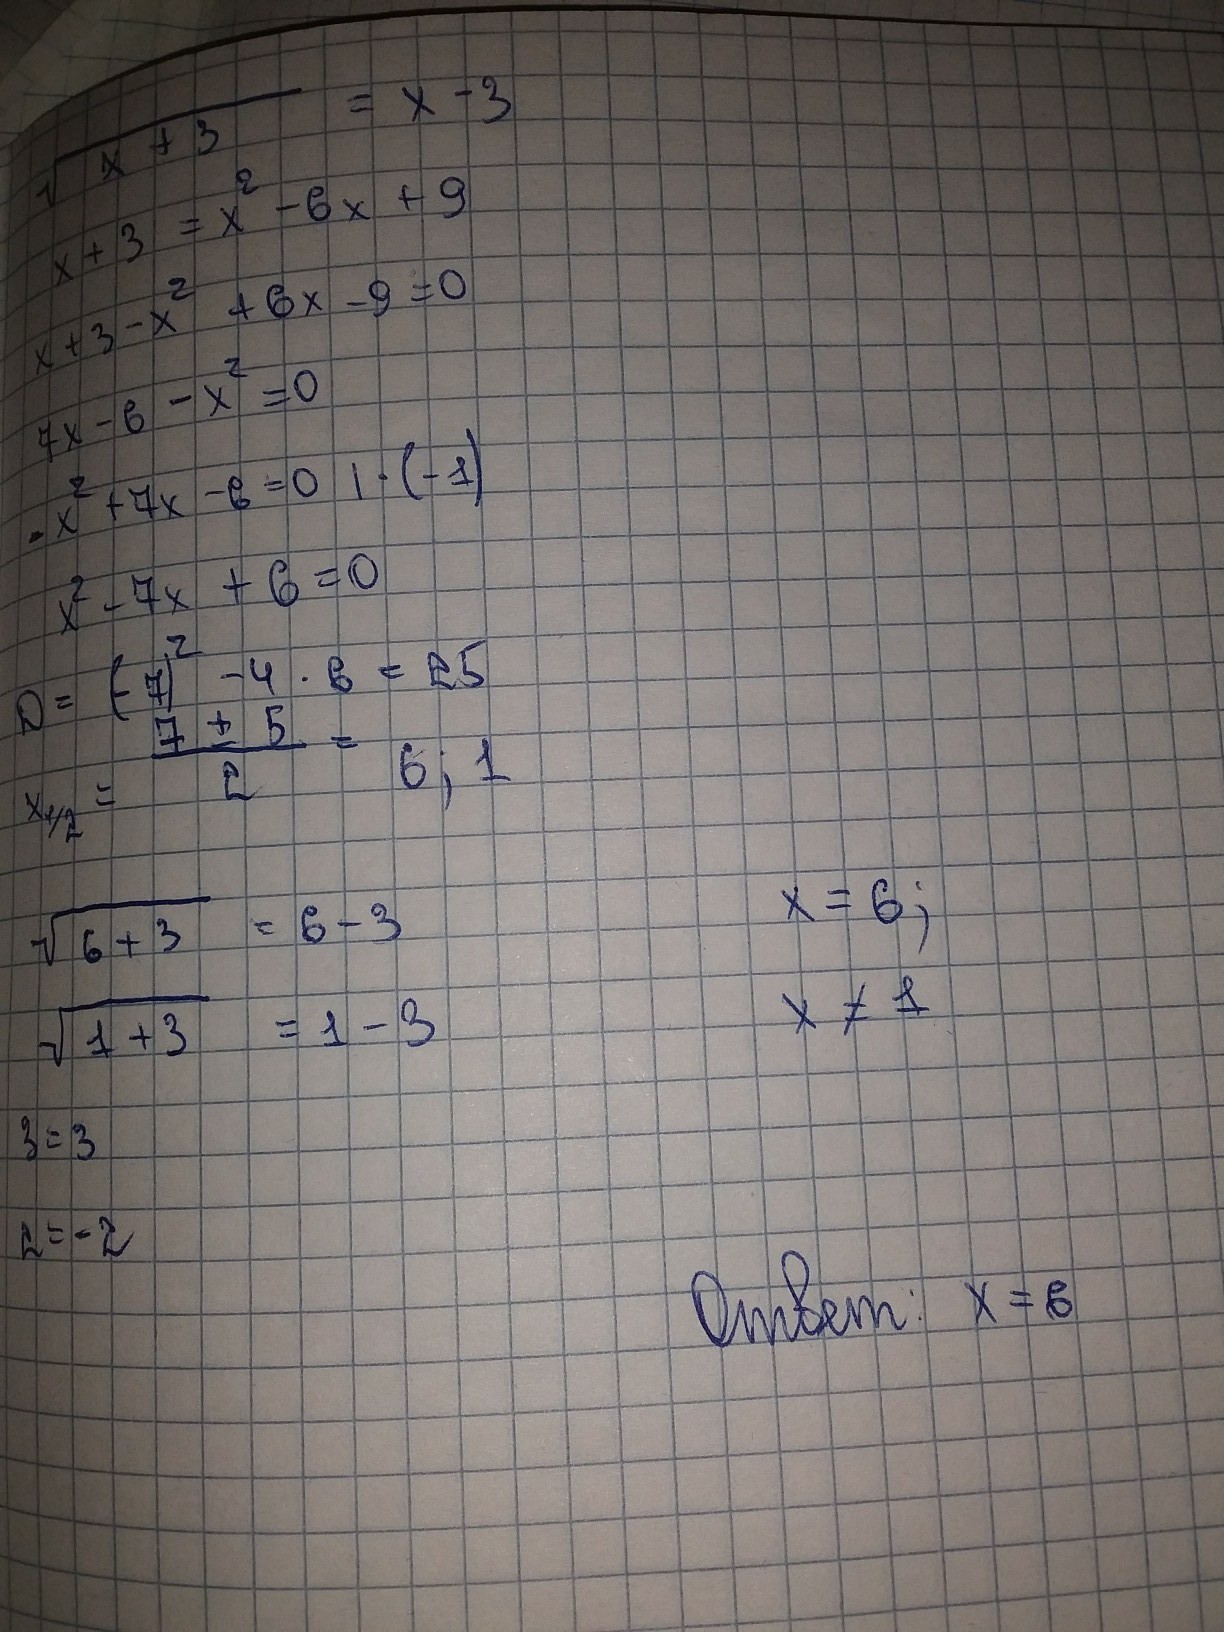 √(x + 3) = x - 3
x + 3 = x² - 6x + 9
x + 3 - x² + 6x - 9 = 0
7x - 6 - x² = 0
-x² + 7x - 6 = 0 | · (-1)
x² - 7x + 6 = 0
D = (-7)² - 4 · 6 = 25
x₁/₂ = (7 ± 5)/2 = 6; 1
√(6 + 3) = 6 - 3
x = 6;
√(1 + 3) = 1 - 3
x ≠ 1
3 = 3
2 = -2
Ответ: x = 6